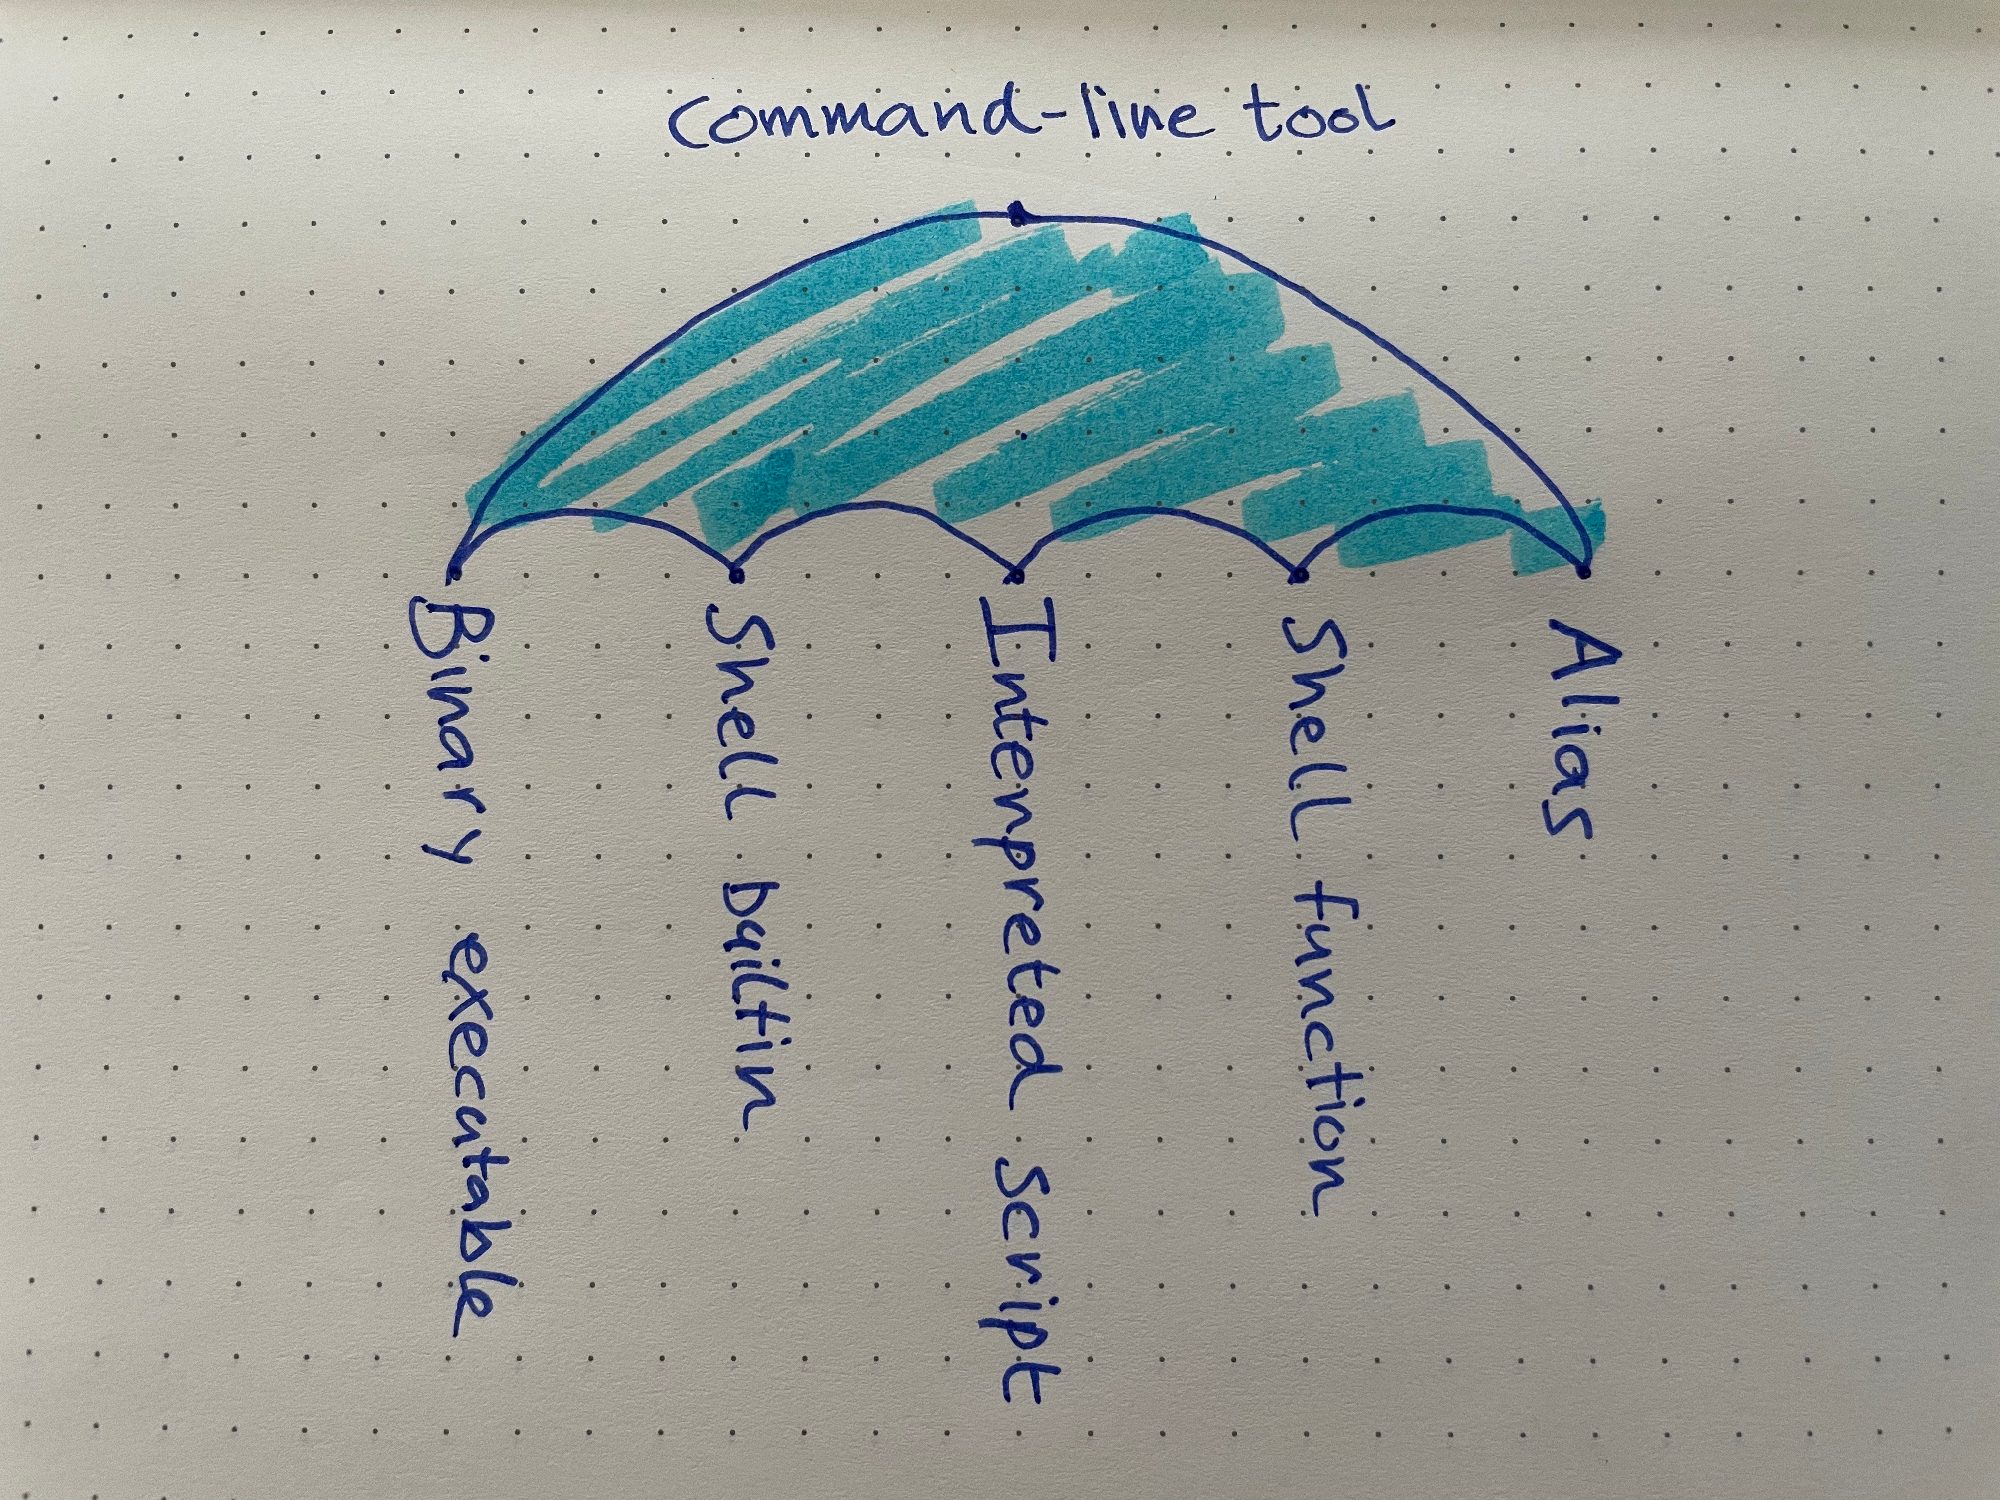 command-line tool
Binary executable
Shell builtin
Interpreted script
Shell function
Alias